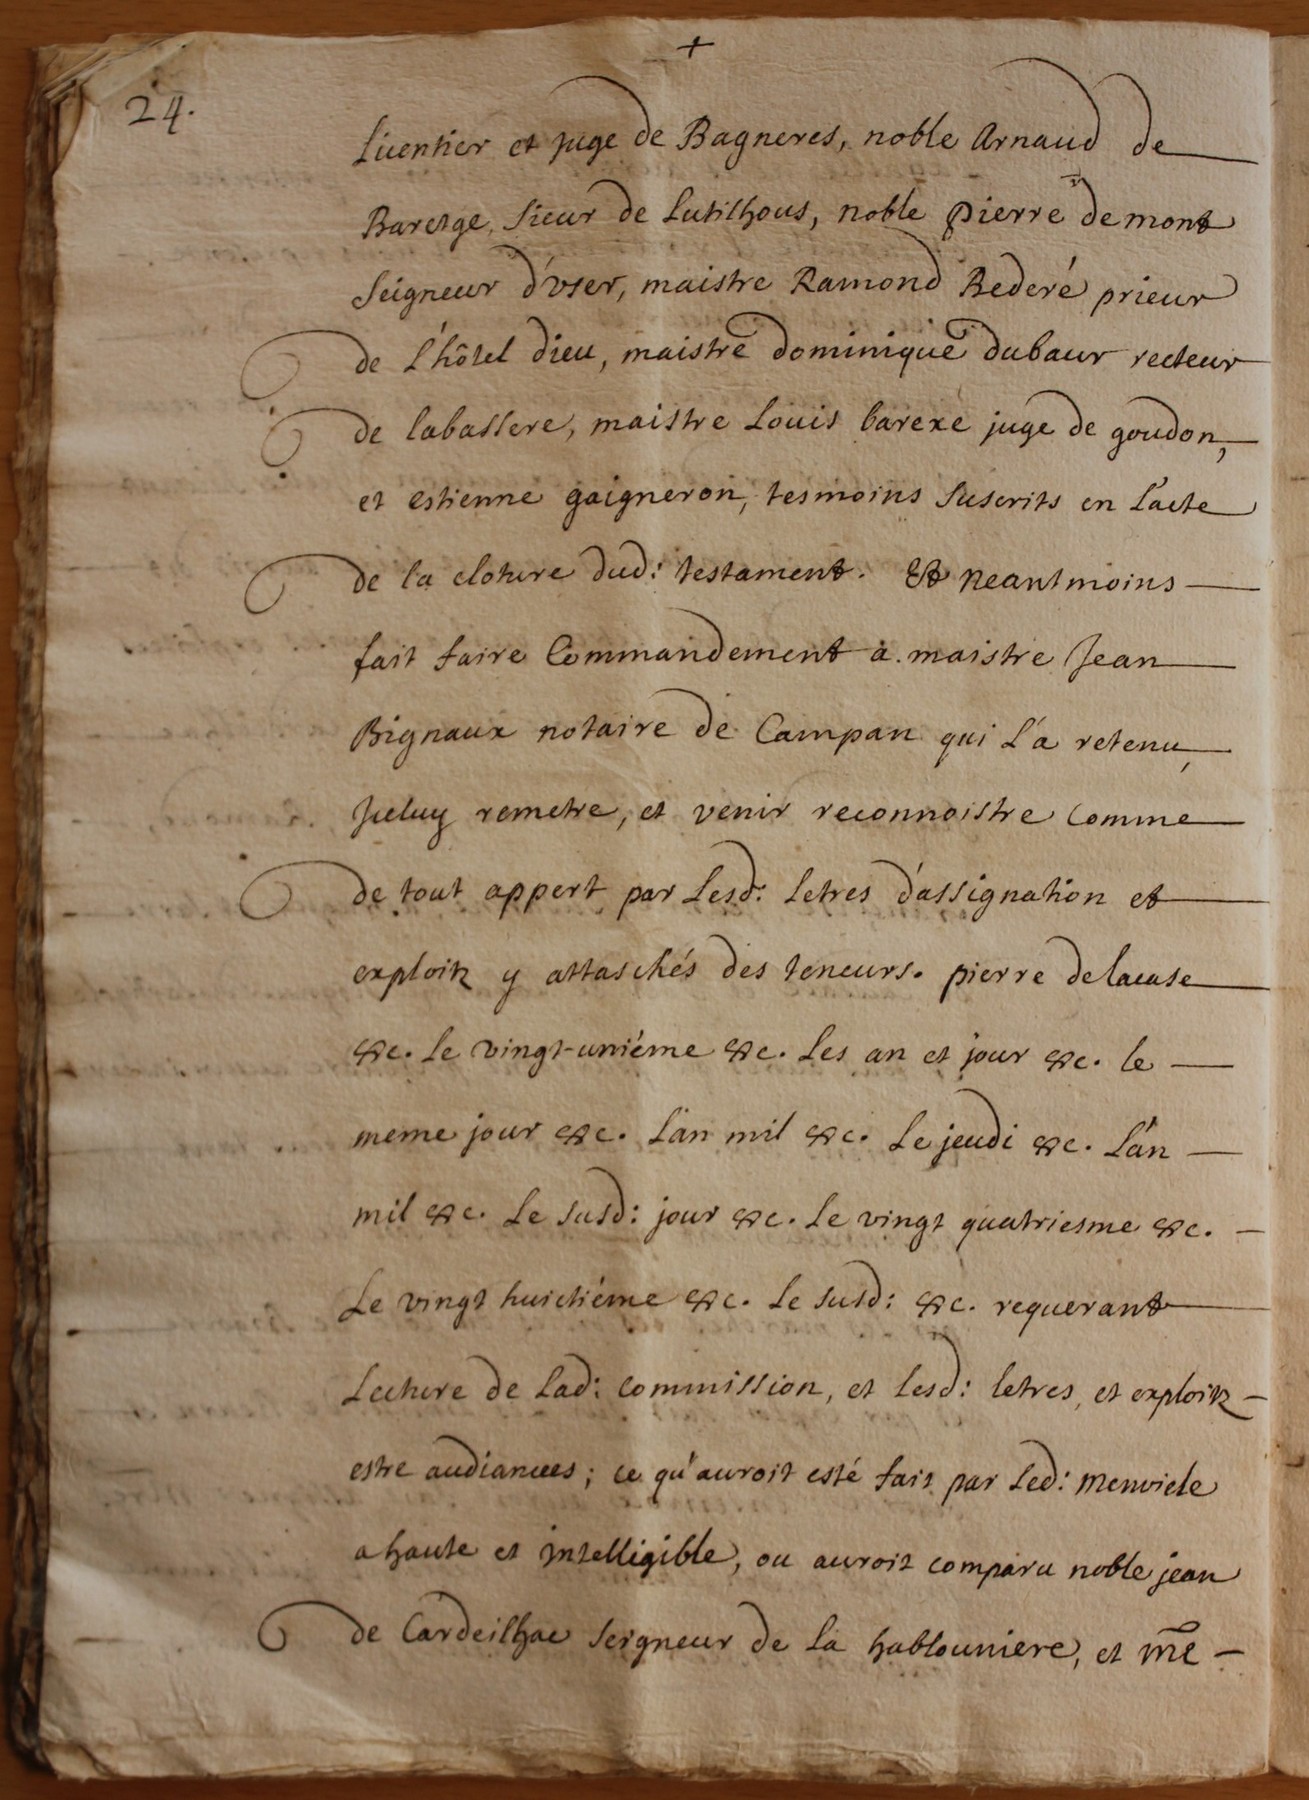 +
24.
Licentier et juge de Bagneres, noble Arnaud de
Baretge, sieur de Lutilhous, noble pierre demont
seigneur d'vser, maistre Ramond Rederé prieur
de L'hôtel dieu, maistre dominique dubaur recteur
de labassere, maistre Louis barexe juge de goudon,
et estienne gaigneron, tesmoins suscrits en L'acte
de la cloture dud: testament. Et neantmoins
fait faire Commandement a. maistre Jean
Bignaux notaire de Campan qui L'a retenu,
Jceluy remetre, et venir reconnoistre comme
de tout appert par Lesd: letres d'assignation et
exploitz y attaschés des teneurs. pierre delacase
&c. Le vingt-uniéme &c. Les an et jour &c. le
meme jour &c. L'an mil &c. Le jeudi &c. L'an
mil &c. Le susd: jour &c. Le vingt quatriesme &c.
Le vingt huictiéme &c. Le susd: &c. requerant
Lecture de Lad: commission, et Lesd: letres, et exploitz
estre audiancees; ce qu'auroit esté fait par Led: menviele
a haute et intelligible, ou auroit comparu noble jean
de Cardeilhac seigneur de La hablouniere, et me